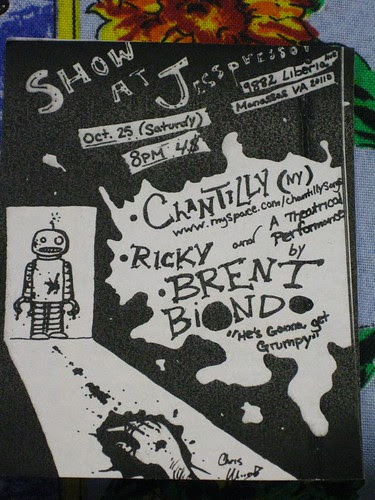 SHOW
AT JESSPRESSO!
9382 Liberia Ave
Manassas VA 20110
Oct. 25 (Saturdy)
8PM 4$
• CHANTILLY (NY)
www.myspace.com/chantillysongs
• RICKY and A Theatrical
Performance
by
• BRENT
BIONDO
"He's Gonna get
Grumpy"
Chris